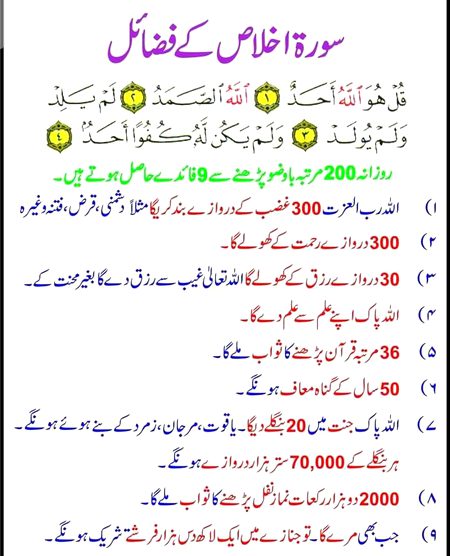 سورۃ اخلاص کے فضائل
قُلْ هُوَ ٱللَّهُ أَحَدٌ ١ ٱللَّهُ ٱلصَّمَدُ ٢ لَمْ يَلِدْ
وَلَمْ يُولَدْ ٣ وَلَمْ يَكُن لَّهُۥ كُفُوًا أَحَدٌۢ ٤
روزانہ 200 مرتبہ باوضو پڑھنے سے 9 فائدے حاصل ہوتے ہیں۔
۱) اللہ رب العزت 300 غضب کے دروازے بند کریگا مثلاً دشمنی، قرض، فتنہ وغیرہ
۲) 300 دروازے رحمت کے کھولے گا۔
۳) 30 دروازے رزق کے کھولے گا اللہ تعالیٰ غیب سے رزق دے گا بغیر محنت کے۔
۴) اللہ پاک اپنے علم سے علم دے گا۔
۵) 36 مرتبہ قرآن پڑھنے کا ثواب ملے گا۔
۶) 50 سال کے گناہ معاف ہونگے۔
۷) اللہ پاک جنت میں 20 بنگلے دیگا۔ یاقوت، مرجان، زمرد کے بنے ہوئے ہونگے۔
ہر بنگلے کے 70,000 ستر ہزار دروازے ہونگے۔
۸) 2000 دو ہزار رکعات نماز نفل پڑھنے کا ثواب ملے گا۔
۹) جب بھی مرے گا۔ تو جنازے میں ایک لاکھ دس ہزار فرشتے شریک ہونگے۔